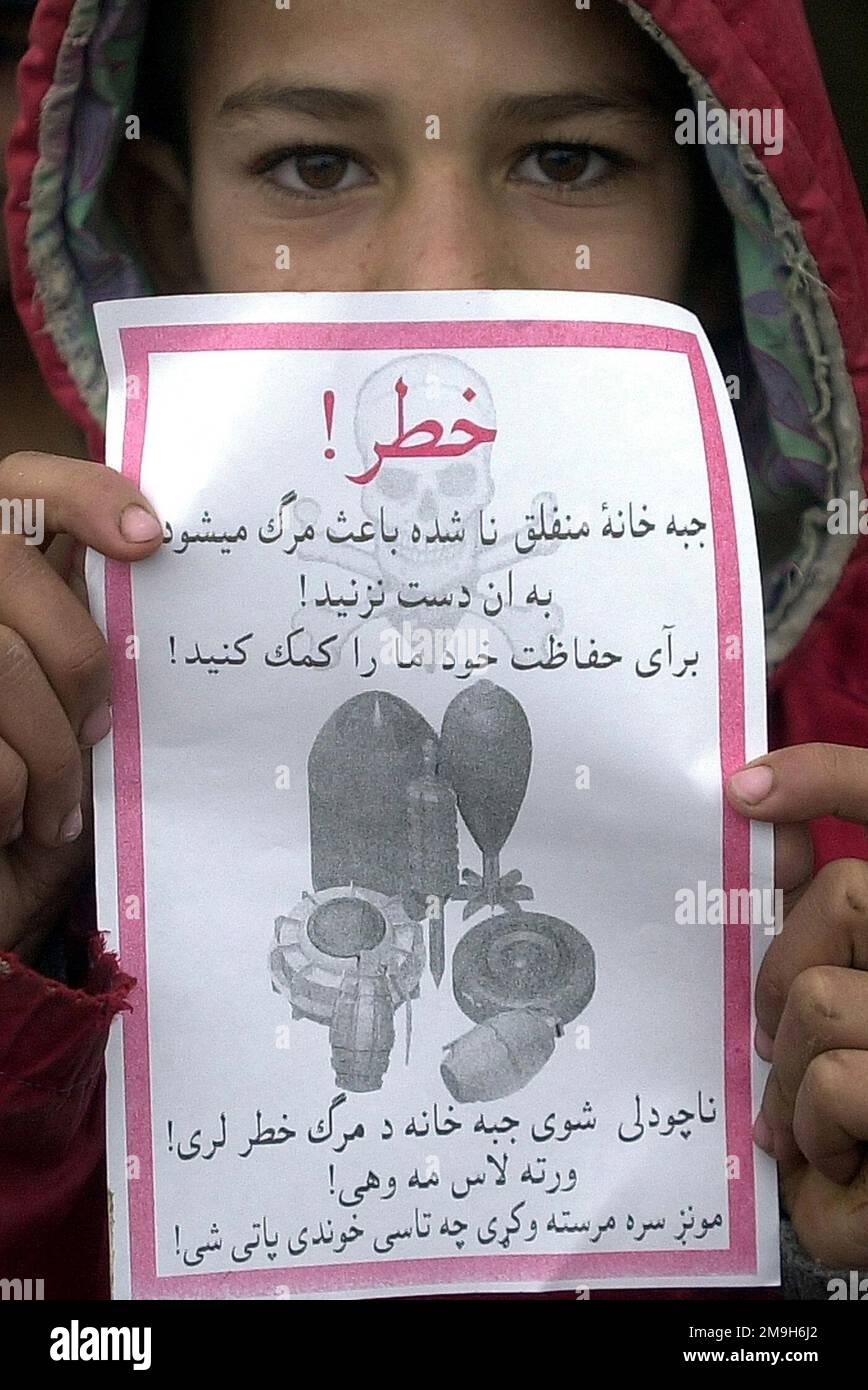 خطر!
جبه خانهٔ منفلق نا شده باعث مرگ میشود
به ان دست نزنید!
برآی حفاظت خود ما را کمک کنید!
ناچودلی شوی جبه خانه د مرگ خطر لری!
ورته لاس مه وهی!
مونږ سره مرسته وکړی چه تاسی خوندی پاتی شی!
alamy
alamy
alamy
Image ID: 2M9H6J2
www.alamy.com